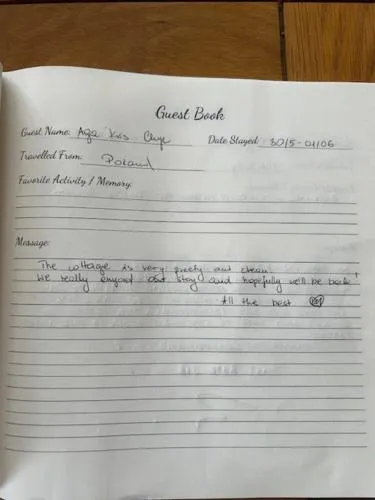 Guest Book
Guest Name: Aga Kris
Date Stayed: 30/5 - 01/06
Travelled From: Poland
Favorite Activity / Memory:
Message:
The cottage is very pretty and clean.
We really enjoyed our stay and hopefully we'll be back!
All the best